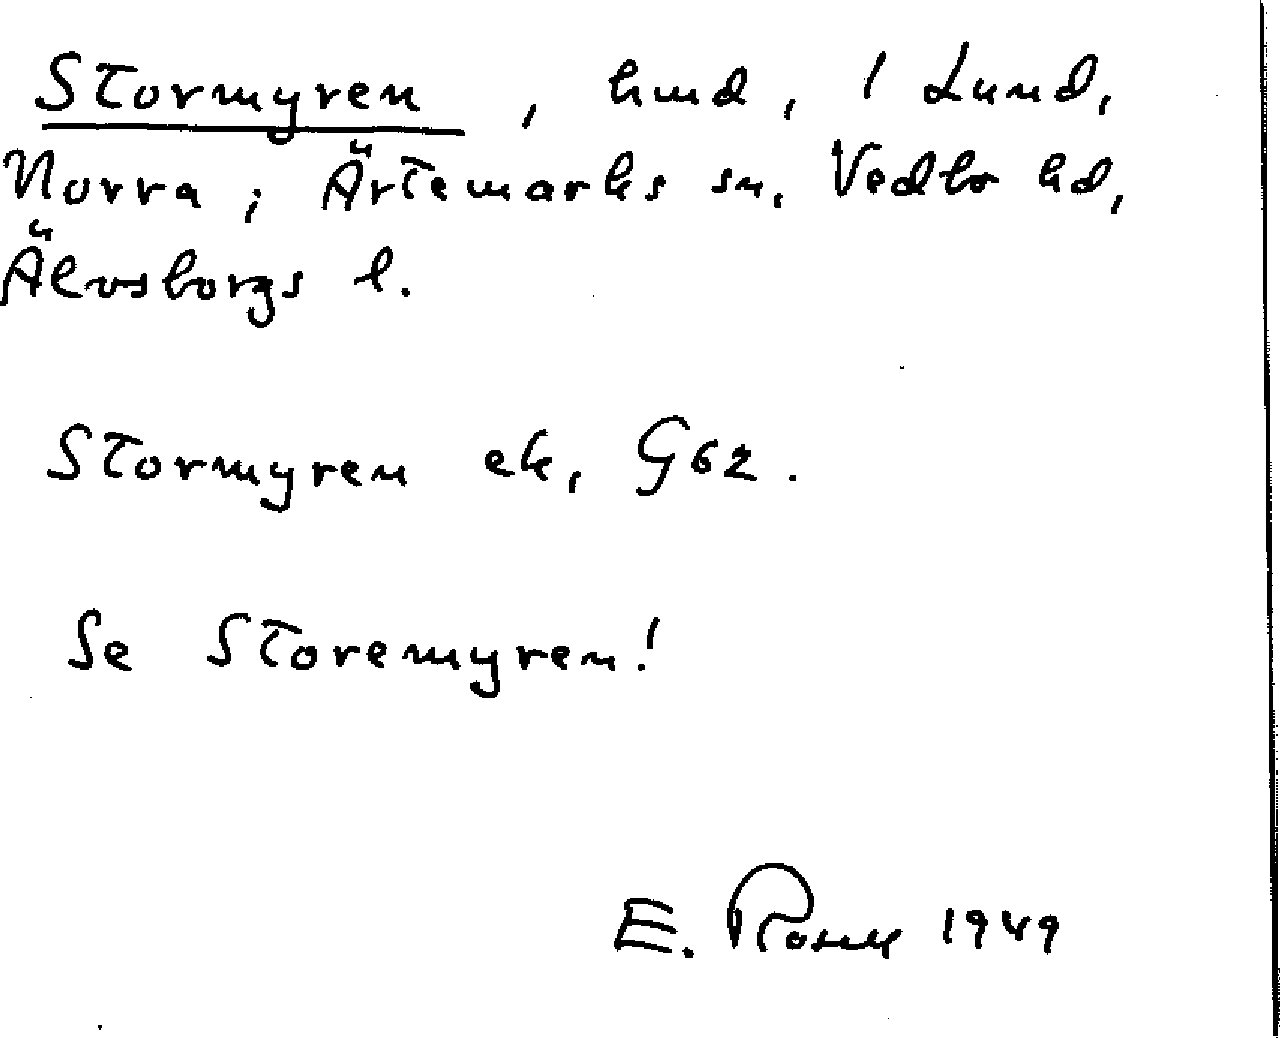 Stormyren, hmd, 1 Lund,
Norra; Ärtemarks sn. Vedbo hd,
Älvsborgs l.
Stormyren ek, G62.
Se Storemyren!
E. 1949